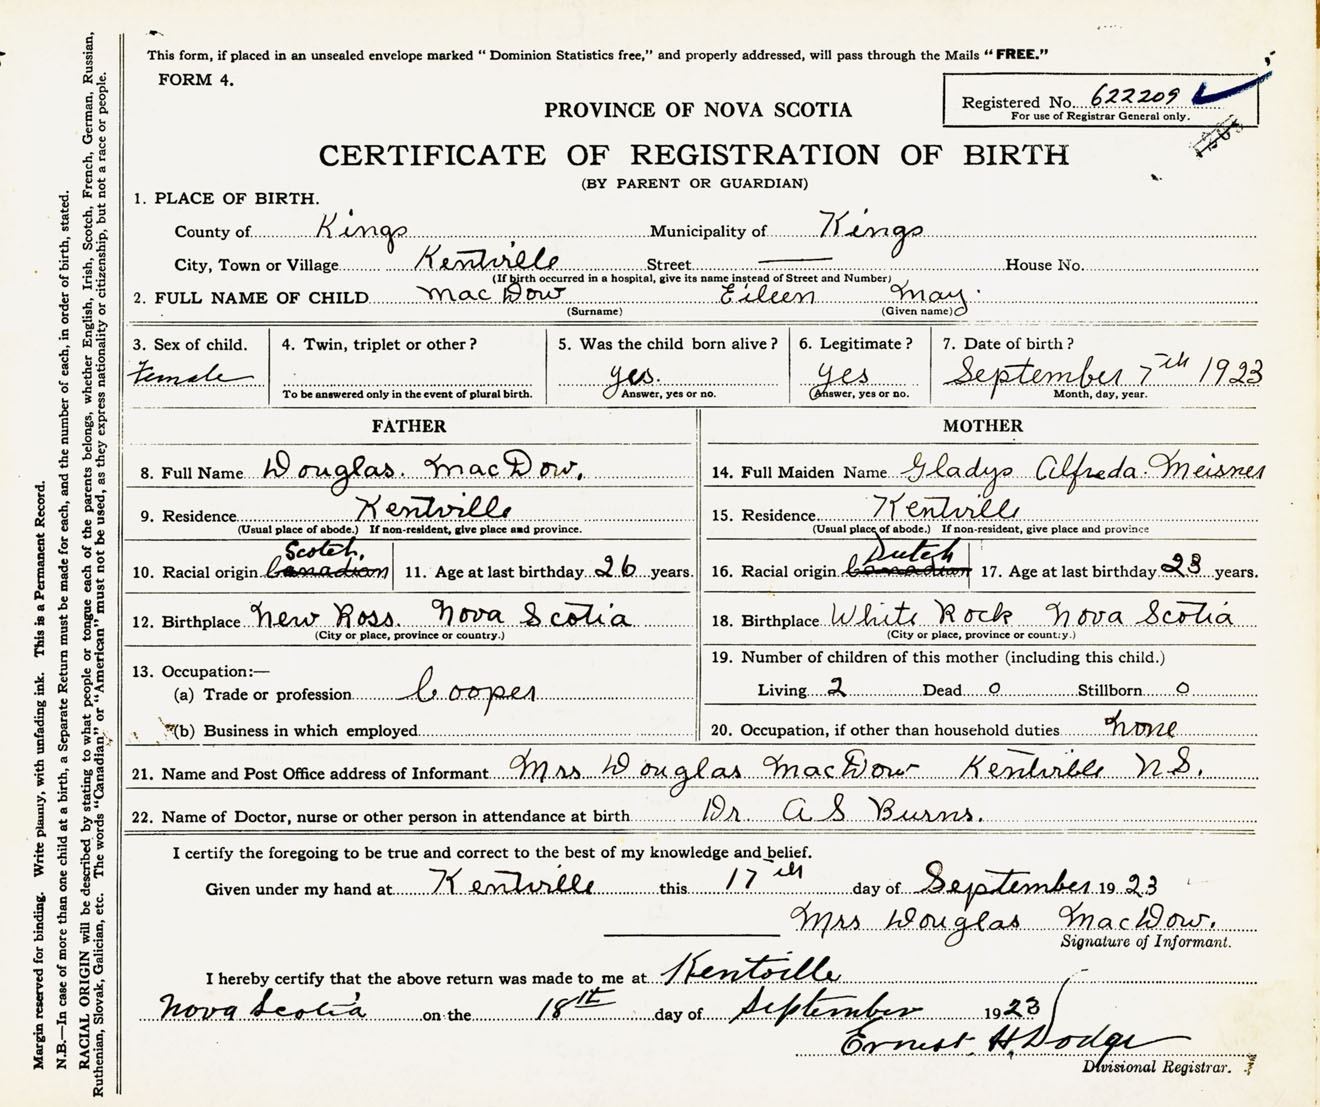 This form, if placed in an unsealed envelope marked “ Dominion Statistics free,” and properly addressed, will pass through the Mails “ FREE.”
FORM 4.
Registered No. 622209
For use of Registrar General only.
PROVINCE OF NOVA SCOTIA
CERTIFICATE OF REGISTRATION OF BIRTH
(BY PARENT OR GUARDIAN)
1. PLACE OF BIRTH.
County of Kings Municipality of Kings
City, Town or Village Kentville Street — House No.
(If birth occurred in a hospital, give its name instead of Street and Number)
2. FULL NAME OF CHILD MacDow Eileen May.
(Surname) (Given name)
3. Sex of child. 4. Twin, triplet or other ? 5. Was the child born alive ? 6. Legitimate ? 7. Date of birth ?
Female yes. yes September 7th 1923
To be answered only in the event of plural birth. Answer, yes or no. Answer, yes or no. Month, day, year.
FATHER MOTHER
8. Full Name Douglas. MacDow. 14. Full Maiden Name Gladys Alfreda Meisner
9. Residence Kentville 15. Residence Kentville
(Usual place of abode.) If non-resident, give place and province. (Usual place of abode.) If non-resident, give place and province
Scotch. Dutch
10. Racial origin Canadian 11. Age at last birthday 26 years. 16. Racial origin Canadian 17. Age at last birthday 23 years.
12. Birthplace New Ross. Nova Scotia 18. Birthplace White Rock Nova Scotia
(City or place, province or country.) (City or place, province or country.)
13. Occupation:— 19. Number of children of this mother (including this child.)
(a) Trade or profession Cooper Living 2 Dead 0 Stillborn 0
(b) Business in which employed 20. Occupation, if other than household duties none
21. Name and Post Office address of Informant Mrs Douglas MacDow Kentville N.S.
22. Name of Doctor, nurse or other person in attendance at birth Dr. A S Burns.
I certify the foregoing to be true and correct to the best of my knowledge and belief.
Given under my hand at Kentville this 17th day of September 1923
Mrs Douglas MacDow.
Signature of Informant.
I hereby certify that the above return was made to me at Kentville
Nova Scotia on the 18th day of September 1923
Ernest H. Dodge
Divisional Registrar.
Margin reserved for binding. Write plainly, with unfading ink. This is a Permanent Record.
N.B.—In case of more than one child at a birth, a Separate Return must be made for each, and the number of each, in order of birth, stated.
RACIAL ORIGIN will be described by stating to what people or tongue each of the parents belongs, whether English, Irish, Scotch, French, German, Russian,
Ruthenian, Slovak, Galician, etc. The words “Canadian,” or “American” must not be used, as they express nationality or citizenship, but not a race or people.